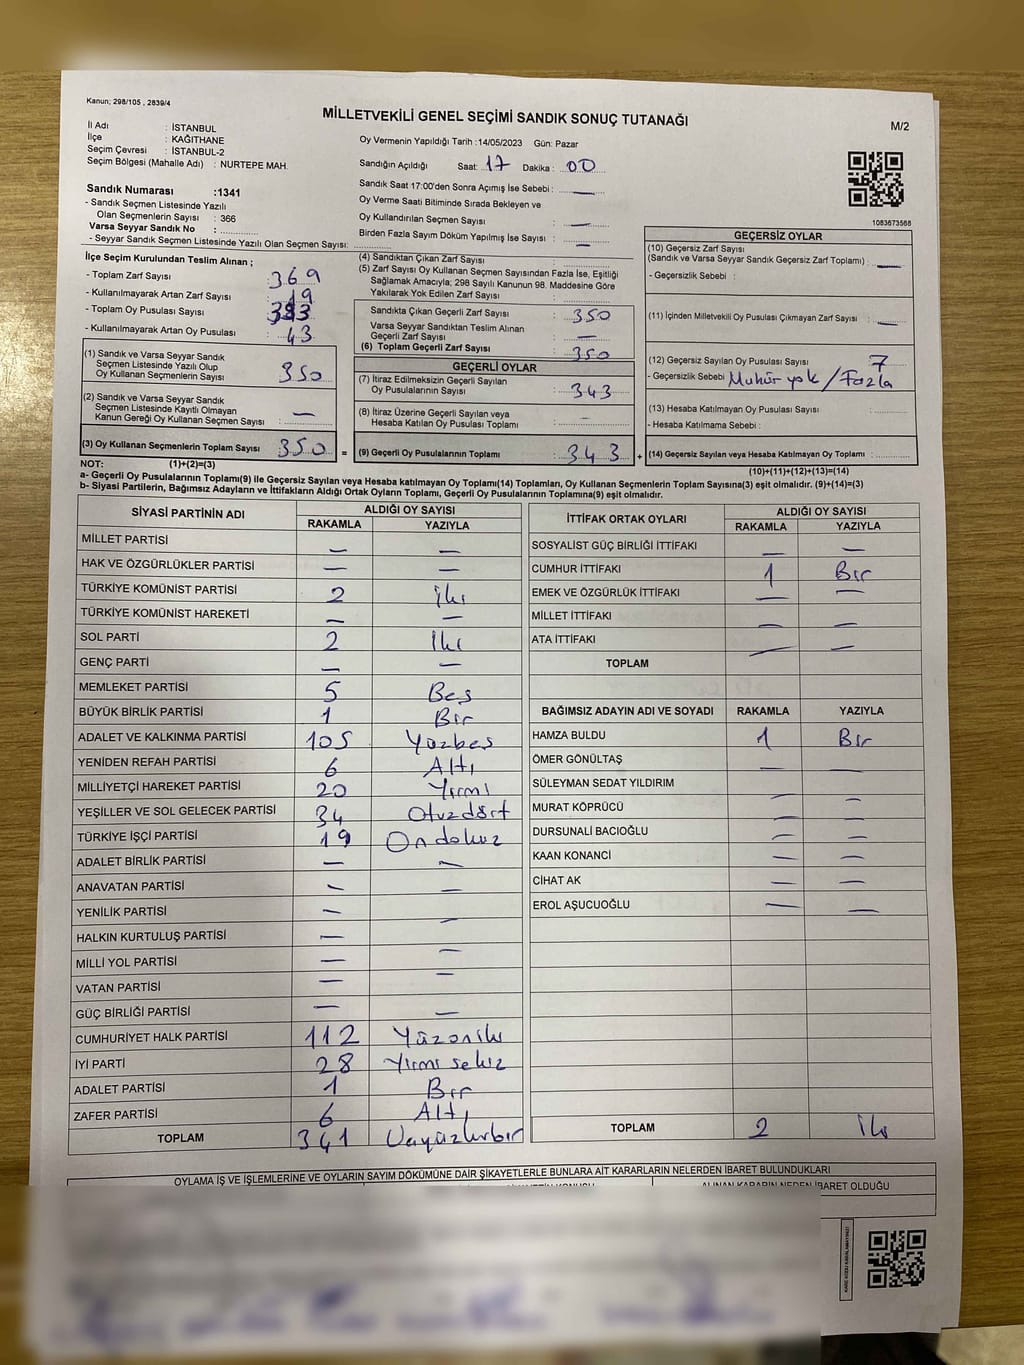 Kanun; 298/105 , 2839/4
MİLLETVEKİLİ GENEL SEÇİMİ SANDIK SONUÇ TUTANAĞI
M/2
İl Adı : İSTANBUL
İlçe : KAĞITHANE
Seçim Çevresi : İSTANBUL-2
Seçim Bölgesi (Mahalle Adı) : NURTEPE MAH.
Oy Vermenin Yapıldığı Tarih :14/05/2023 Gün: Pazar
Sandığın Açıldığı Saat: 17 Dakika : 00
Sandık Saat 17:00'den Sonra Açımış İse Sebebi : —
Oy Verme Saati Bitiminde Sırada Bekleyen ve
Oy Kullandırılan Seçmen Sayısı : —
Birden Fazla Sayım Döküm Yapılmış İse Sayısı : —
1083673568
Sandık Numarası :1341
- Sandık Seçmen Listesinde Yazılı
Olan Seçmenlerin Sayısı : 366
Varsa Seyyar Sandık No :
- Seyyar Sandık Seçmen Listesinde Yazılı Olan Seçmen Sayısı:
İlçe Seçim Kurulundan Teslim Alınan ;
- Toplam Zarf Sayısı : 369
- Kullanılmayarak Artan Zarf Sayısı : 19
- Toplam Oy Pusulası Sayısı :
- Kullanılmayarak Artan Oy Pusulası : 43
(1) Sandık ve Varsa Seyyar Sandık
Seçmen Listesinde Yazılı Olup
Oy Kullanan Seçmenlerin Sayısı : 350
(2) Sandık ve Varsa Seyyar Sandık
Seçmen Listesinde Kayıtlı Olmayan
Kanun Gereği Oy Kullanan Seçmen Sayısı : —
(3) Oy Kullanan Seçmenlerin Toplam Sayısı : 350 =
(4) Sandıktan Çıkan Zarf Sayısı :
(5) Zarf Sayısı Oy Kullanan Seçmen Sayısından Fazla İse, Eşitliği
Sağlamak Amacıyla; 298 Sayılı Kanunun 98. Maddesine Göre
Yakılarak Yok Edilen Zarf Sayısı :
Sandıkta Çıkan Geçerli Zarf Sayısı : 350
Varsa Seyyar Sandıktan Teslim Alınan
Geçerli Zarf Sayısı : —
(6) Toplam Geçerli Zarf Sayısı : 350
GEÇERLİ OYLAR
(7) İtiraz Edilmeksizin Geçerli Sayılan
Oy Pusulalarının Sayısı : 343
(8) İtiraz Üzerine Geçerli Sayılan veya
Hesaba Katılan Oy Pusulası Toplamı : —
(9) Geçerli Oy Pusulalarının Toplamı : 343 +
GEÇERSİZ OYLAR
(10) Geçersiz Zarf Sayısı
(Sandık ve Varsa Seyyar Sandık Geçersiz Zarf Toplamı) : —
- Geçersizlik Sebebi :
(11) İçinden Milletvekili Oy Pusulası Çıkmayan Zarf Sayısı : —
(12) Geçersiz Sayılan Oy Pusulası Sayısı : 7
- Geçersizlik Sebebi : Muhür yok / Fazla
(13) Hesaba Katılmayan Oy Pusulası Sayısı :
- Hesaba Katılmama Sebebi :
(14) Geçersiz Sayılan veya Hesaba Katılmayan Oy Toplamı :
NOT: (1)+(2)=(3)
(10)+(11)+(12)+(13)=(14)
a- Geçerli Oy Pusulalarının Toplamı(9) ile Geçersiz Sayılan veya Hesaba katılmayan Oy Toplamı(14) Toplamları, Oy Kullanan Seçmenlerin Toplam Sayısına(3) eşit olmalıdır. (9)+(14)=(3)
b- Siyasi Partilerin, Bağımsız Adayların ve İttifakların Aldığı Ortak Oyların Toplamı, Geçerli Oy Pusulalarının Toplamına(9) eşit olmalıdır.
SİYASİ PARTİNİN ADI ALDIĞI OY SAYISI
RAKAMLA YAZIYLA
MİLLET PARTİSİ — —
HAK VE ÖZGÜRLÜKLER PARTİSİ — —
TÜRKİYE KOMÜNİST PARTİSİ 2 İki
TÜRKİYE KOMÜNİST HAREKETİ — —
SOL PARTİ 2 İki
GENÇ PARTİ — —
MEMLEKET PARTİSİ 5 Beş
BÜYÜK BİRLİK PARTİSİ 1 Bir
ADALET VE KALKINMA PARTİSİ 105 Yüzbeş
YENİDEN REFAH PARTİSİ 6 Altı
MİLLİYETÇİ HAREKET PARTİSİ 20 Yirmi
YEŞİLLER VE SOL GELECEK PARTİSİ 34 Otuzdört
TÜRKİYE İŞÇİ PARTİSİ 19 Ondokuz
ADALET BİRLİK PARTİSİ — —
ANAVATAN PARTİSİ — —
YENİLİK PARTİSİ — —
HALKIN KURTULUŞ PARTİSİ —
MİLLİ YOL PARTİSİ — —
VATAN PARTİSİ — —
GÜÇ BİRLİĞİ PARTİSİ — —
CUMHURİYET HALK PARTİSİ 112 Yüzoniki
İYİ PARTİ 28 Yirmi sekiz
ADALET PARTİSİ 1 Bir
ZAFER PARTİSİ 6 Altı
TOPLAM 341
İTTİFAK ORTAK OYLARI ALDIĞI OY SAYISI
RAKAMLA YAZIYLA
SOSYALİST GÜÇ BİRLİĞİ İTTİFAKI — —
CUMHUR İTTİFAKI 1 Bir
EMEK VE ÖZGÜRLÜK İTTİFAKI — —
MİLLET İTTİFAKI — —
ATA İTTİFAKI — —
TOPLAM
BAĞIMSIZ ADAYIN ADI VE SOYADI RAKAMLA YAZIYLA
HAMZA BULDU 1 Bir
ÖMER GÖNÜLTAŞ — —
SÜLEYMAN SEDAT YILDIRIM — —
MURAT KÖPRÜCÜ — —
DURSUNALİ BACIOĞLU — —
KAAN KONANCİ — —
CİHAT AK — —
EROL AŞUCUOĞLU — —
TOPLAM 2 İki
OYLAMA İŞ VE İŞLEMLERİNE VE OYLARIN SAYIM DÖKÜMÜNE DAİR ŞİKAYETLERLE BUNLARA AİT KARARLARIN NELERDEN İBARET BULUNDUKLARI
ALINAN KARARIN NEDEN İBARET OLDUĞU